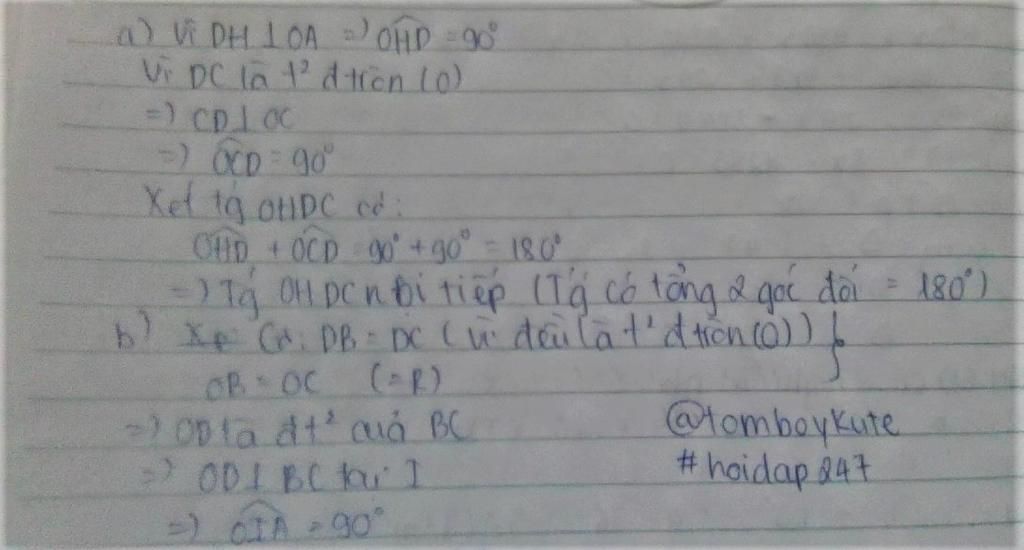 a) Vì DH⊥OA => OHD = 90°
Vì DC là t² đ tròn (O)
=) CD⊥OC
=) OCD = 90°
Xét tg OHDC có:
OHD + OCD = 90° + 90° = 180°
=) Tg OHDC nội tiếp (Tg có tổng 2 góc đối = 180°)
b) Có: DB = DC (vì đều là t² đ tròn (O)) }
OB = OC (=R)
=) OD là đt² của BC
=) OD⊥BC tại I
=) OIA = 90°
@tomboykute
#hoidap247